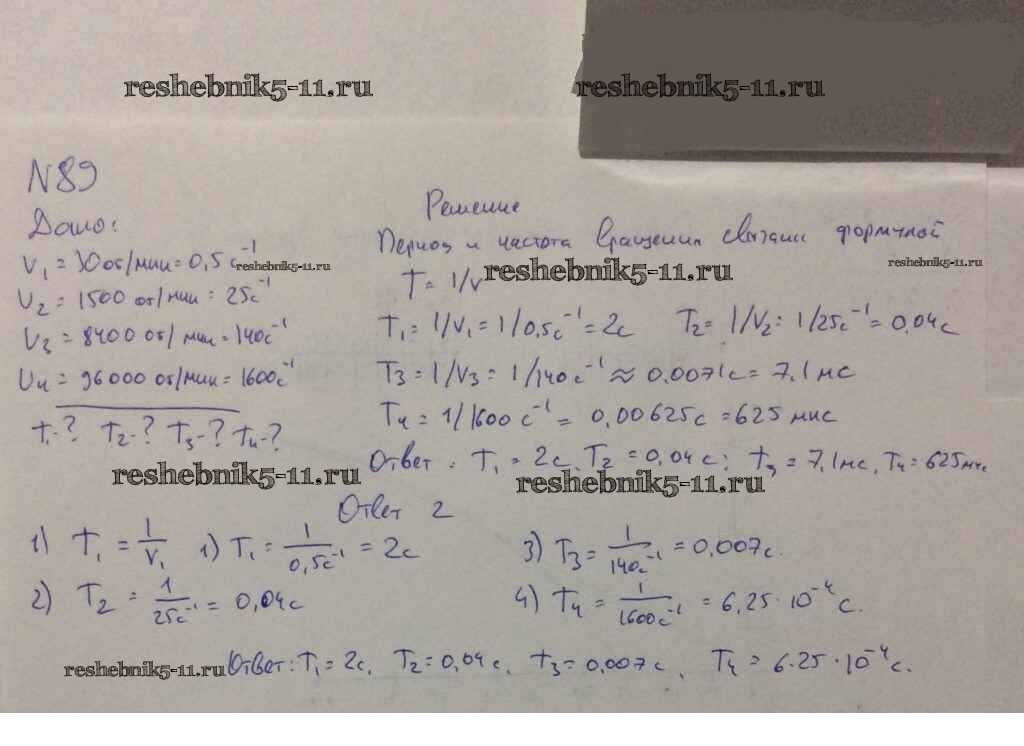 reshebnik5-11.ru reshebnik5-11.ru
N89
Дано:
Решение
ν₁ = 30 об/мин = 0,5 с⁻¹
reshebnik5-11.ru
ν₂ = 1500 об/мин = 25с⁻¹
ν₃ = 8400 об/мин = 140с⁻¹
ν₄ = 96000 об/мин = 1600с⁻¹
T₁-? T₂-? T₃-? T₄-?
Период и частота вращения связаны формулой
T = 1/ν reshebnik5-11.ru reshebnik5-11.ru
T₁ = 1/ν₁ = 1/0,5с⁻¹ = 2с T₂ = 1/ν₂ = 1/25с⁻¹ = 0,04с
T₃ = 1/ν₃ = 1/140с⁻¹ ≈ 0,0071с = 7,1 мс
T₄ = 1/1600 с⁻¹ = 0,00625с = 625 мкс
Ответ: T₁ = 2с, T₂ = 0,04с; t₃ = 7,1мс, T₄ = 625мкс
reshebnik5-11.ru reshebnik5-11.ru
Ответ 2
1) T₁ = 1/ν₁ 1) T₁ = 1/0,5с⁻¹ = 2с
3) T₃ = 1/140с⁻¹ = 0,007с.
2) T₂ = 1/25с⁻¹ = 0,04с
4) T₄ = 1/1600с⁻¹ = 6,25·10⁻⁴ с.
reshebnik5-11.ru Ответ: T₁ = 2с, T₂ = 0,04с, t₃ = 0,007с, T₄ = 6.25·10⁻⁴с.